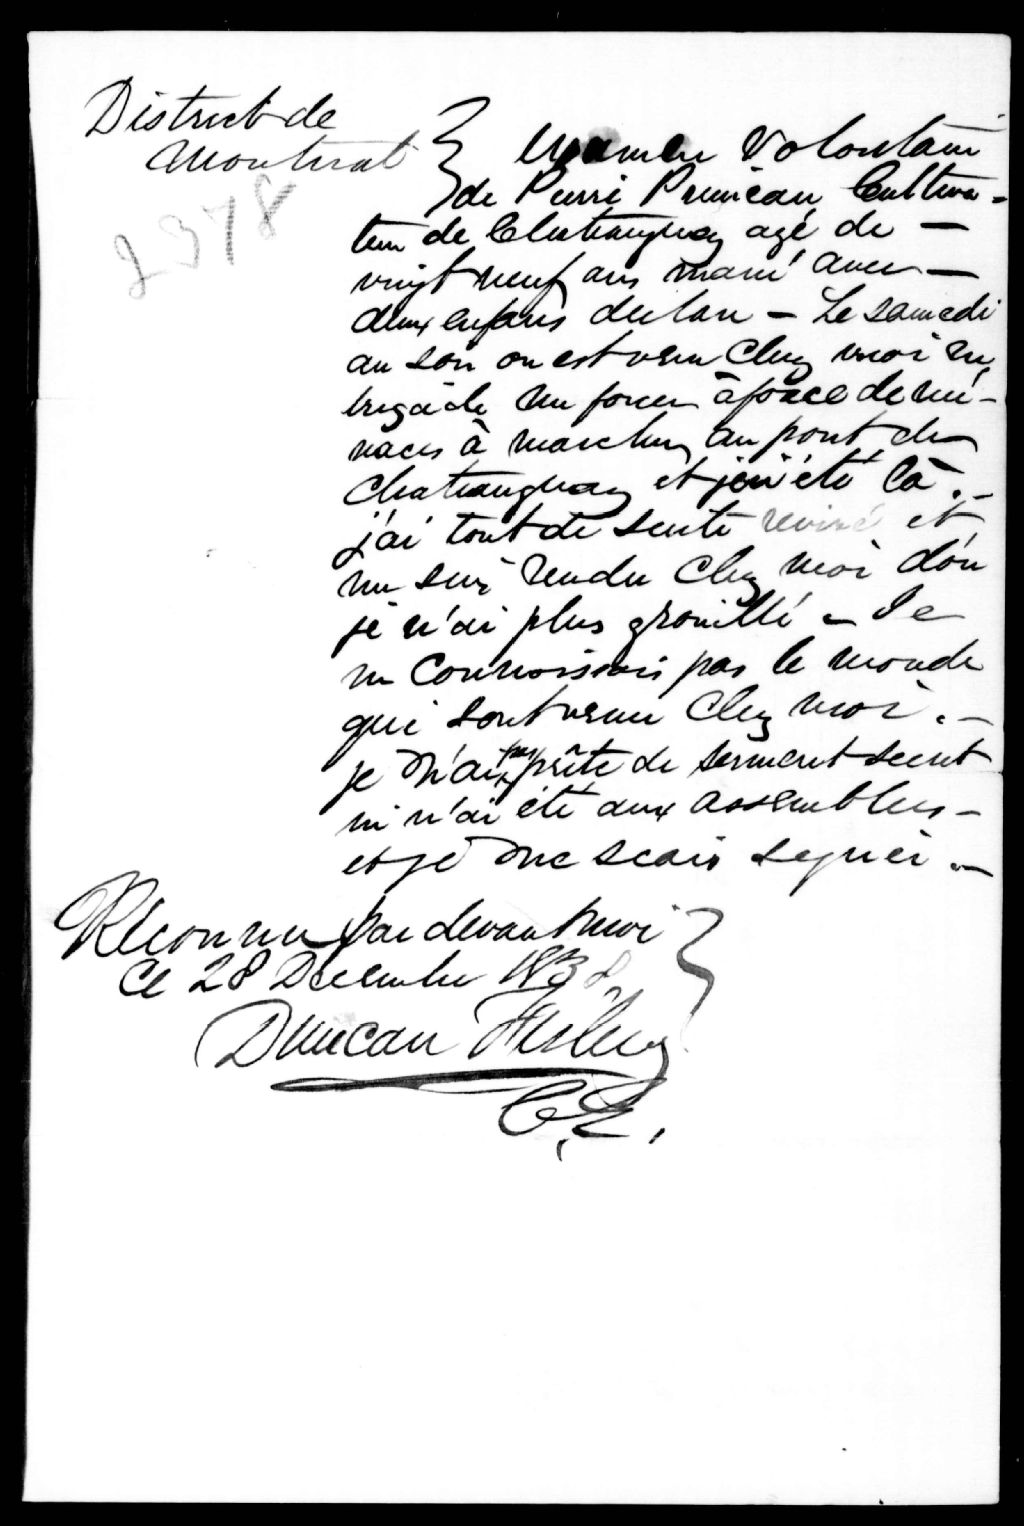 District de
Montreal
2378
Examen Volontaire
de Pierre Primeau Cultiva-
teur de Chateauguay agé de —
vingt neuf ans marié avec —
deux enfans declare — Le samedi
au soir on est venu chez moi en
brigade me forcer à force de mé-
naces à marcher au pont de
Chateauguay et j'en été là. —
j'ai tout de suite et
me suis rendu chez moi d'ou
je n'ai plus grouillé — Je
ne connoissois pas le monde
qui sont venu chez moi. —
je n'ai pas prêté de serment secret
ni n'ai été aux assemblees —
et je ne scais signer. —
Reconnu par devant moi
Ce 28 Decembre 1838
Duncan